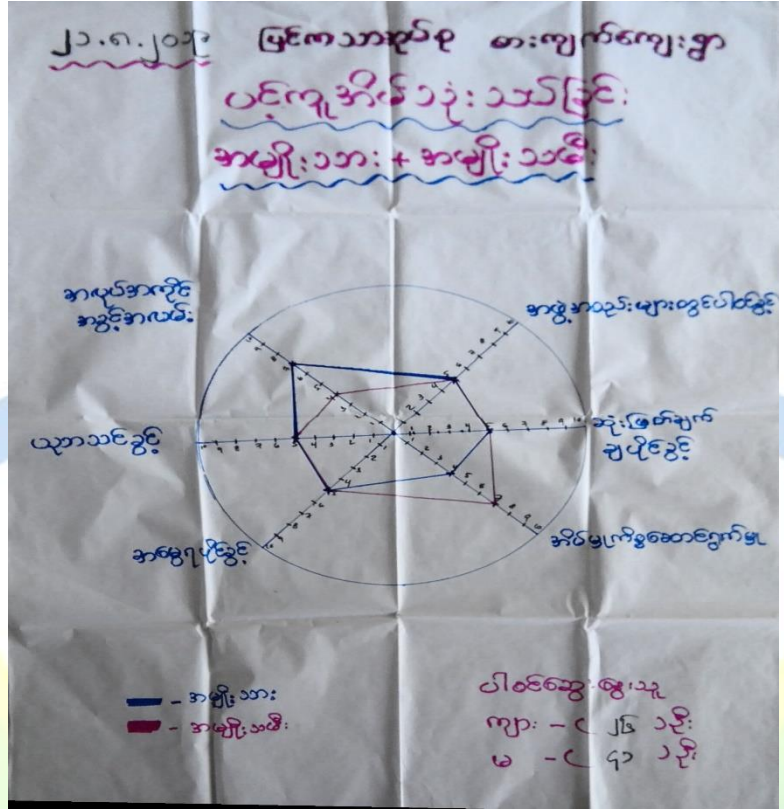 ၂၁.၈.၂၀၁၉ မြင်းကသာအုပ်စု စားကျက်ကျေးရွာ
ပင့်ကူအိမ်သုံးသပ်ခြင်း
အမျိုးသား + အမျိုးသမီး
အလုပ်အကိုင်
အခွင့်အလမ်း
အဖွဲ့အစည်းများတွင်ပါဝင်ခွင့်
ပညာသင်ခွင့်
ဆုံးဖြတ်ချက်
ချပိုင်ခွင့်
အမွေရပိုင်ခွင့်
အိမ်မှုကိစ္စဆောင်ရွက်မှု
- အမျိုးသား
- အမျိုးသမီး
ပါဝင်ဆွေးနွေးသူ
ကျား - ( ၂၆ ) ဦး
မ - ( ၄၁ ) ဦး